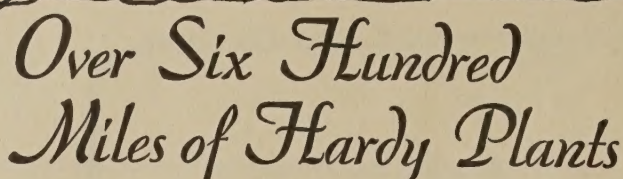 Over Six Hundred
Miles of Hardy Plants